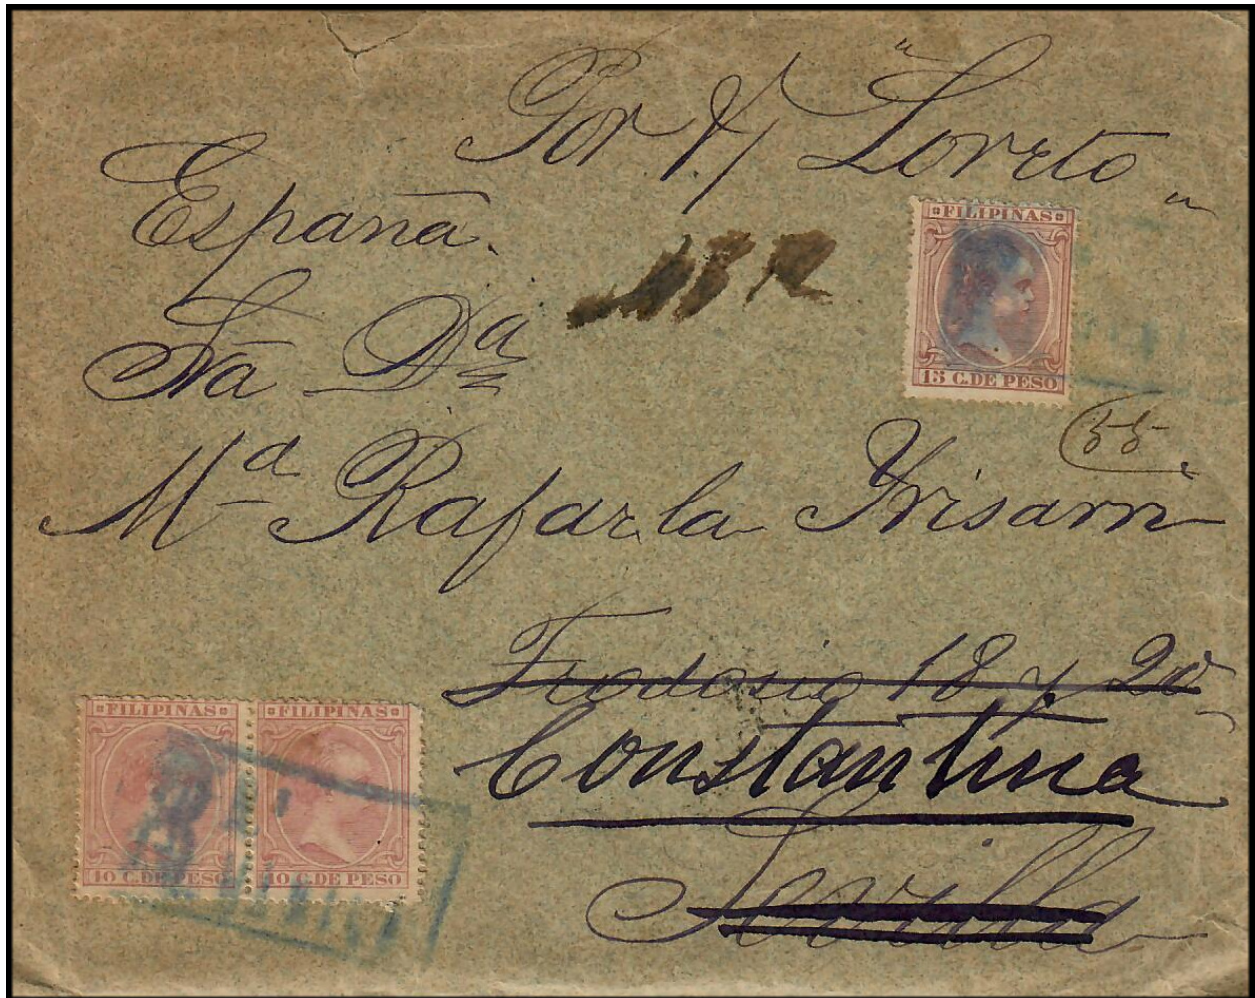 Por V/ "Loreto"
España.
FILIPINAS
15 C. DE PESO
Sra Dª
55
Mª Rafaela Yrisarri
Teodosio 18 y 20
Constantina
Sevilla
FILIPINAS FILIPINAS
10 C. DE PESO 10 C. DE PESO